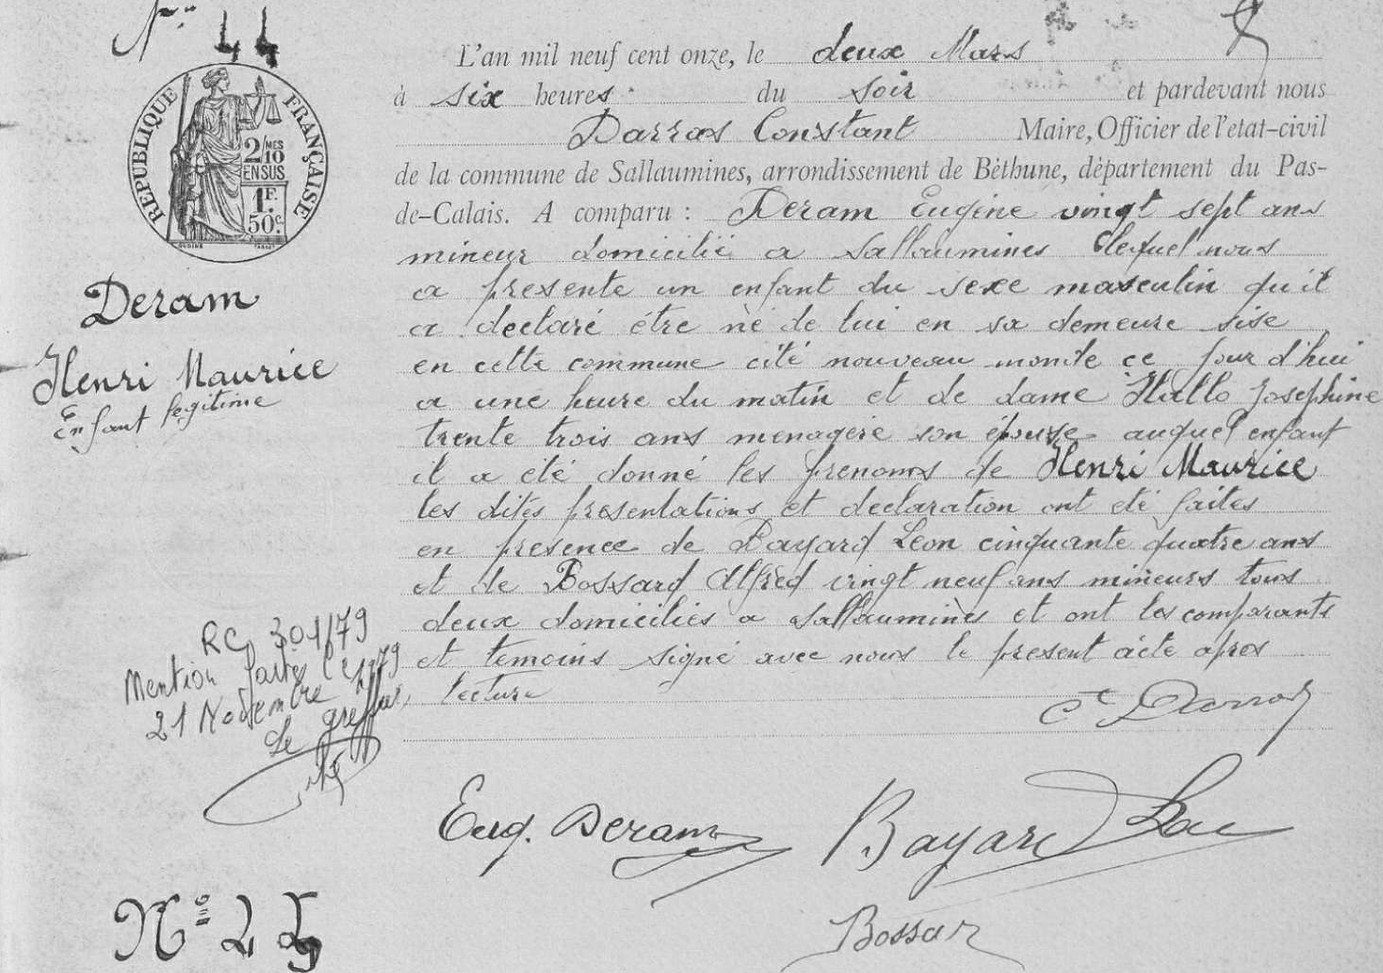 N° 44
RÉPUBLIQUE FRANÇAISE
2/10 MES
EN SUS
1F.
50c.
Deram
Henri Maurice
Enfant légitime
L'an mil neuf cent onze, le deux Mars
à six heures du soir et pardevant nous
Darras Constant Maire, Officier de l'etat-civil
de la commune de Sallaumines, arrondissement de Béthune, département du Pas-
de-Calais. A comparu : Deram Eugène vingt sept ans
mineur domicilié a Sallaumines lequel nous
a presente un enfant du sexe masculin qu'il
a declaré étre né de lui en sa demeure sise
en cette commune cité nouveau monde ce jour d'hui
a une heure du matin et de dame Hallo Josephine
trente trois ans menagère son épouse auquel enfant
il a eté donné les prenoms de Henri Maurice
les dites presentations et declaration ont eté faites
en presence de Bayard Leon cinquante quatre ans
et de Bossard Alfred vingt neuf ans mineurs tous
deux domiciliés a Sallaumines et ont les comparants
et temoins signé avec nous le present acte apres
lecture
RC 301/79
Mention faite le
21 Novembre 1979
Le greffier,
Ct Darras
Eug. Deram
Bayard Leon
Bossar
N° 25